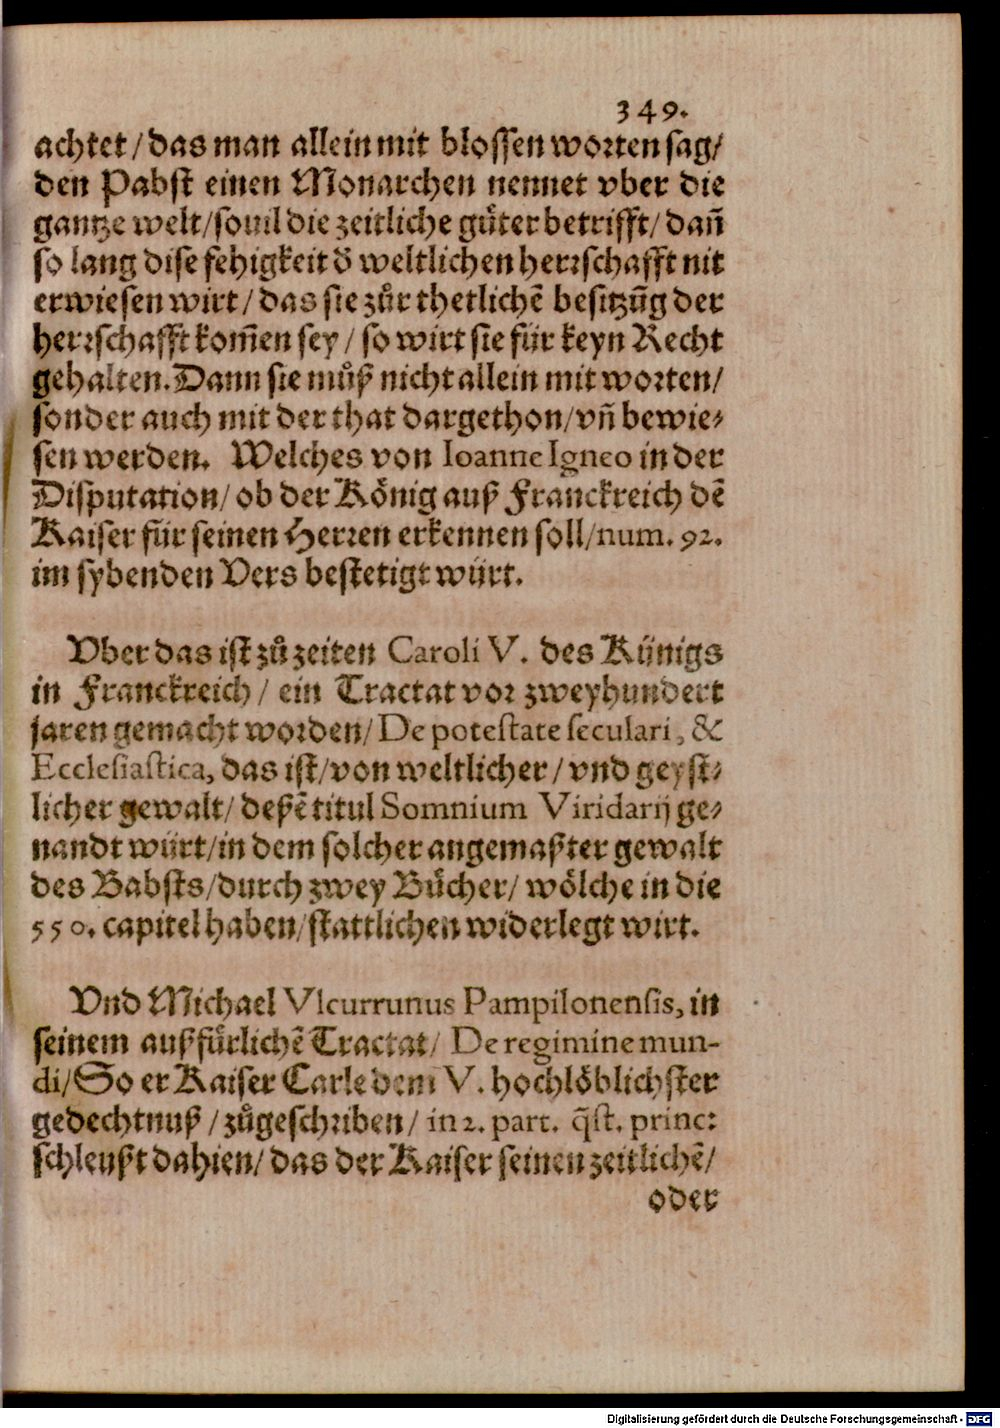 349.
achtet / das man allein mit blossen worten sag/
den Pabst einen Monarchen nennet vber die
gantze welt/souil die zeitliche gůter betrifft/ dañ
so lang dise fehigkeit d̄ weltlichen herrschafft nit
erwiesen wirt / das sie zůr thetlichē besitzūg der
herrschafft kom̄en sey / so wirt sie für keyn Recht
gehalten. Dann sie můß nicht allein mit worten/
sonder auch mit der that dargethon/vñ bewie⸗
sen werden. Welches von Ioanne Igneo in der
Disputation/ ob der König auß Franckreich dē
Kaiser für seinen Herren erkennen soll/num. 92.
im sybenden Vers bestetigt würt.
Vber das ist zů zeiten Caroli V. des Künigs
in Franckreich / ein Tractat vor zweyhundert
jaren gemacht worden/ De potestate seculari, &
Ecclesiastica, das ist/von weltlicher / vnd geyst⸗
licher gewalt/ deßē titul Somnium Viridarij ge⸗
nandt würt/in dem solcher angemaßter gewalt
des Babsts/durch zwey Bücher/ wölche in die
550. capitel haben/stattlichen widerlegt wirt.
Vnd Michael Vlcurrunus Pampilonensis, in
seinem außfürlichē Tractat/ De regimine mun-
di/So er Kaiser Carle dem V. hochlöblichster
gedechtnuß / zůgeschriben / in 2. part. q̄st. princ:
schleußt dahien/ das der Kaiser seinen zeitlichē/
oder
Digitalisierung gefördert durch die Deutsche Forschungsgemeinschaft - DFG